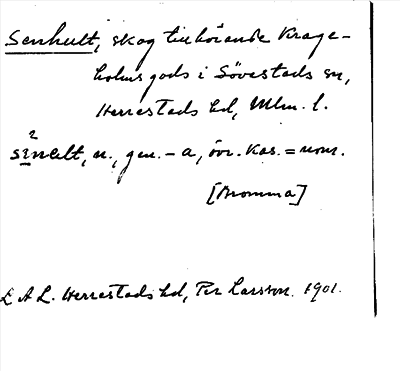 Senhult, skog tillhörande Krage-
holms gods i Sövestads sn,
Herrestads hd, Mlm. l.
2
sinelt, n., gen. -a, övr. kas. = nom.
[Bromma]
L A L. Herrestads hd, Per Larsson. 1901.